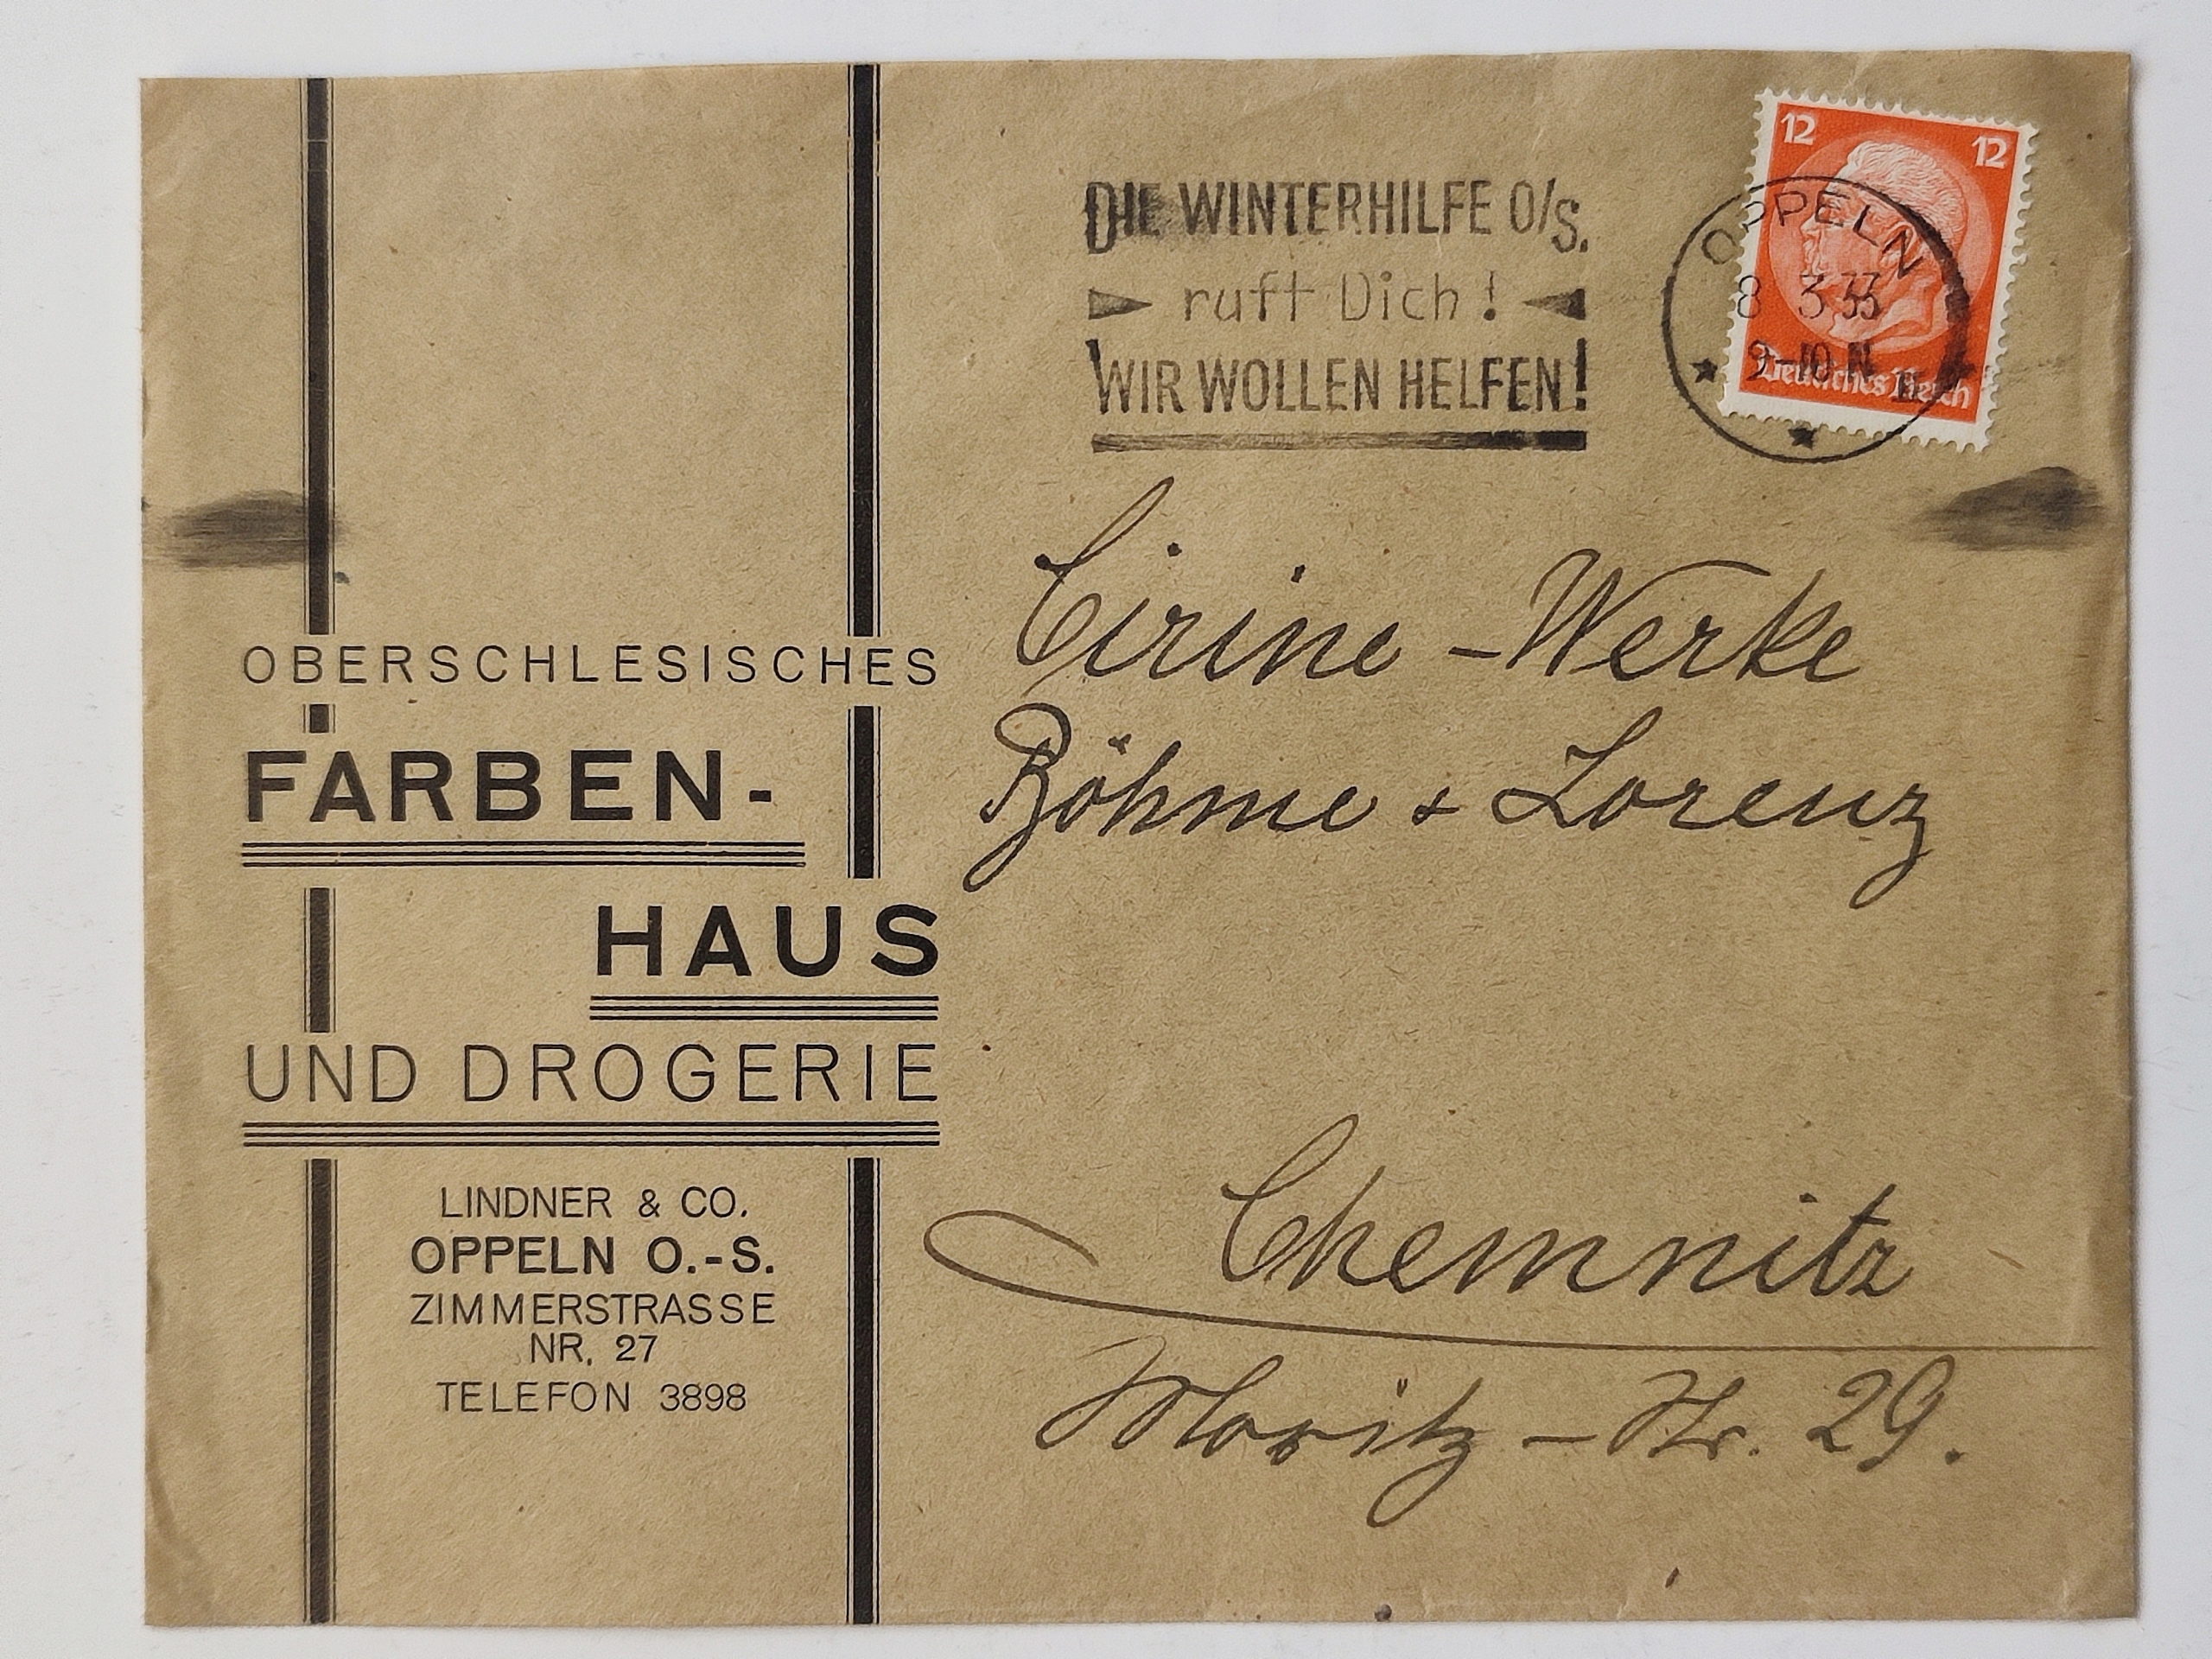 OBERSCHLESISCHES
FARBEN-
HAUS
UND DROGERIE
LINDNER & CO.
OPPELN O.-S.
ZIMMERSTRASSE
NR. 27
TELEFON 3898
DIE WINTERHILFE O/S.
ruft Dich!
WIR WOLLEN HELFEN!
12 12
OPPELN
8 3.33
9-10 N
Deutsches Reich
Cirine - Werke
Böhme + Lorenz
Chemnitz
Moritz - Str. 29.